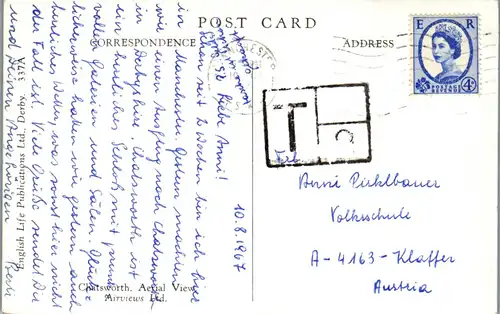 POST CARD
CORRESPONDENCE
ADDRESS
E R
POSTAGE
REVENUE
4D
T
10.8.1967
Liebe Anni!
Schon seit 2 Wochen bin ich hier
in Manch. Gestern machten
wir einen Ausflug nach Chatsworth
in Derbyshire. Chatsworth ist
ein herrliches Schloß mit prunk-
vollen Galerien und Sälen. Glück-
licherweise hatten wir gestern auch
herrliches Wetter, was sonst hier nicht
der Fall ist. Viele Grüße sendet Dir
und Deinen Angehörigen
English Life Publications Ltd., Derby. 337A
Chatsworth, Aerial View
Airviews Ltd.
Anni Pichlbauer
Volksschule
A-4163-Klaffer
Austria